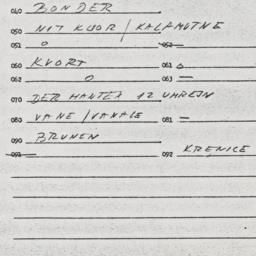 040 BONDER
050 NIT KLOR / KALAMUTNE
051 O 052 —
060 KVORT 061 O
062 O 063 —
070 DER MANTEX 12 UHREJN
080 VANE / VANALE 081 —
090 BRUNEN
091 — 092 KRENICE